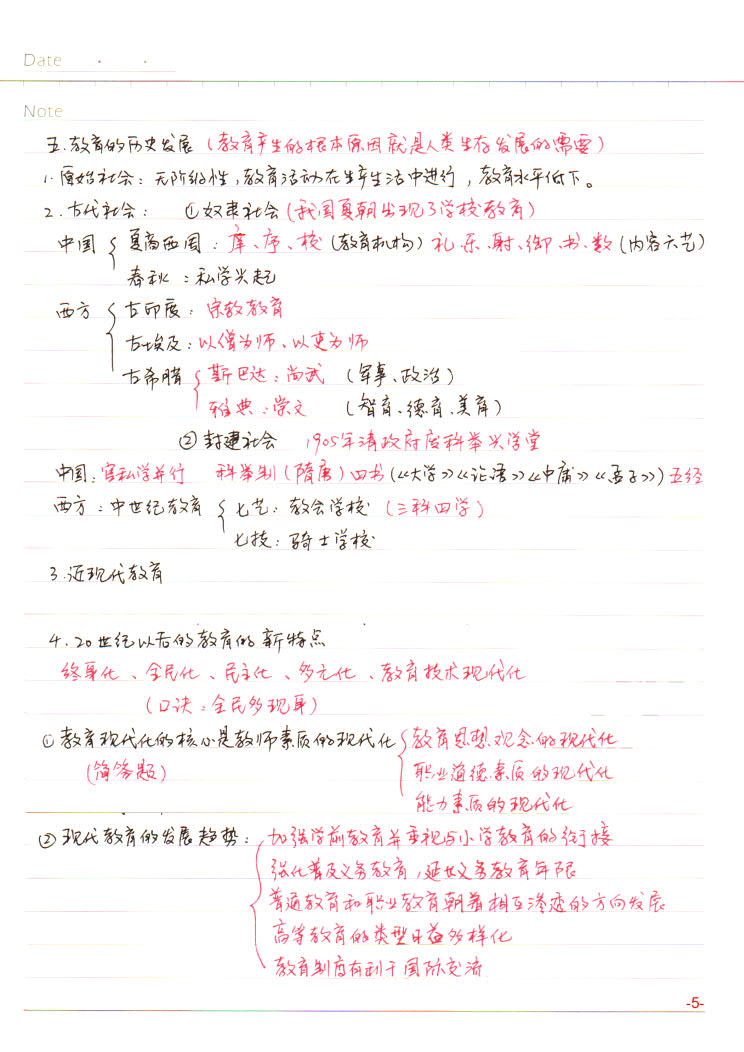 Date
Note
五.教育的历史发展(教育产生的根本原因就是人类生存发展的需要)
1.原始社会:无阶级性,教育活动在生产生活中进行,教育水平低下。
2.古代社会: ①奴隶社会(我国夏朝出现了学校教育)
中国 { 夏商西周:庠、序、校(教育机构) 礼、乐、射、御、书、数(内容六艺)
春秋:私学兴起
西方 { 古印度:宗教教育
古埃及:以僧为师、以吏为师
古希腊 { 斯巴达:尚武 (军事、政治)
雅典:崇文 (智育、德育、美育)
②封建社会 1905年清政府废科举兴学堂
中国:官私学并行 科举制(隋唐)四书(《大学》《论语》《中庸》《孟子》)五经
西方:中世纪教育 { 七艺:教会学校 (三科四学)
七技:骑士学校
3.近现代教育
4.20世纪以后的教育的新特点
终身化、全民化、民主化、多元化、教育技术现代化
(口诀:全民多现身)
①教育现代化的核心是教师素质的现代化 { 教育思想观念的现代化
(简答题) 职业道德素质的现代化
能力素质的现代化
②现代教育的发展趋势: { 加强学前教育并重视与小学教育的衔接
强化普及义务教育,延长义务教育年限
普通教育和职业教育朝着相互渗透的方向发展
高等教育的类型日益多样化
教育制度有利于国际交流
-5-